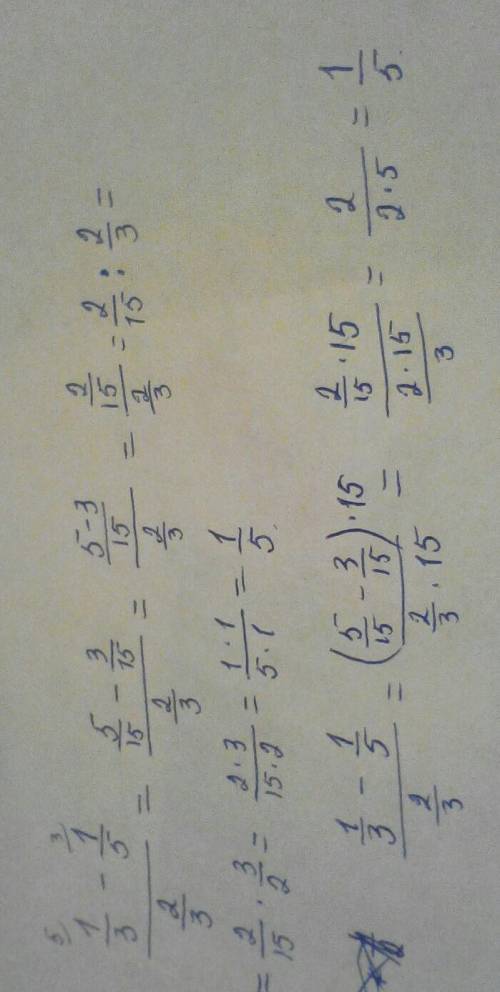 \frac{\overset{5/}{\frac{1}{3}} - \overset{3/}{\frac{1}{5}}}{\frac{2}{3}} = \frac{\frac{5}{15} - \frac{3}{15}}{\frac{2}{3}} = \frac{\frac{5-3}{15}}{\frac{2}{3}} = \frac{\frac{2}{15}}{\frac{2}{3}} = \frac{2}{15} : \frac{2}{3} =
= \frac{2}{15} \cdot \frac{3}{2} = \frac{2 \cdot 3}{15 \cdot 2} = \frac{1 \cdot 1}{5 \cdot 1} = \frac{1}{5}.
\frac{\frac{1}{3} - \frac{1}{5}}{\frac{2}{3}} = \frac{\left(\frac{5}{15} - \frac{3}{15}\right) \cdot 15}{\frac{2}{3} \cdot 15} = \frac{\frac{2}{15} \cdot 15}{\frac{2 \cdot 15}{3}} = \frac{2}{2 \cdot 5} = \frac{1}{5}.